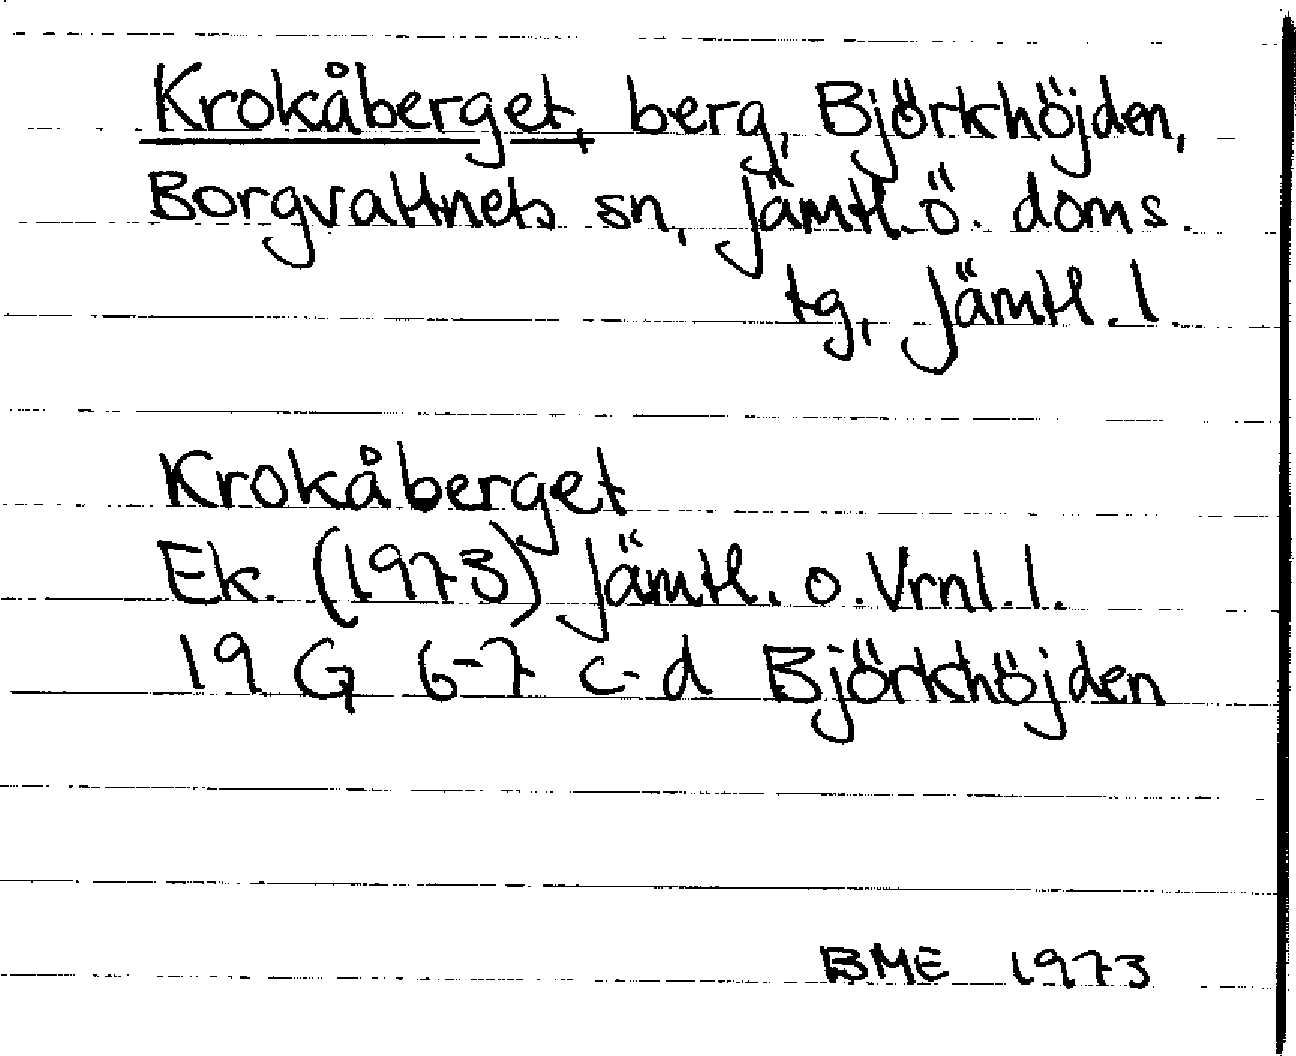 Krokåberget, berg, Björkhöjden,
Borgvattnets sn, Jämtl. ö. doms.
tg, Jämtl. l.
Krokåberget
Ek. (1973) Jämtl. o. Vrnl. l.
19 G 6-7 c-d Björkhöjden
BME 1973